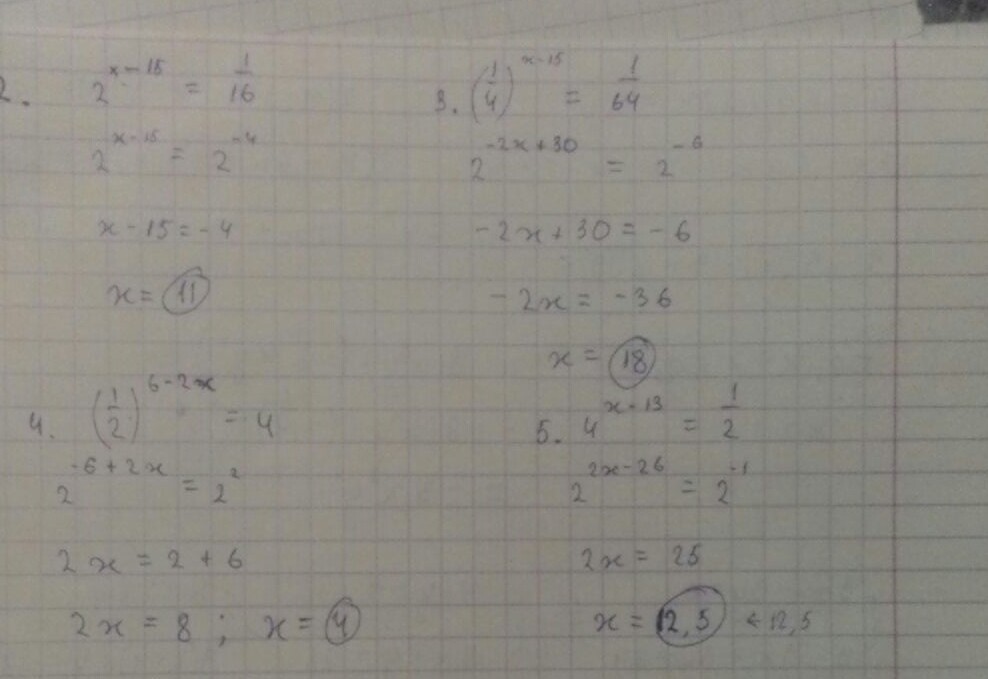 2. 2^{x-15} = 1/16
2^{x-15} = 2^{-4}
x-15=-4
x= 11
3. (1/4)^{x-15} = 1/64
2^{-2x+30} = 2^{-6}
-2x+30=-6
-2x = -36
x = 18
4. (1/2)^{6-2x} = 4
2^{-6+2x} = 2^{2}
2x = 2+6
2x = 8 ; x = 4
5. 4^{x-13} = 1/2
2^{2x-26} = 2^{-1}
2x = 25
x = 12,5 ← 12,5